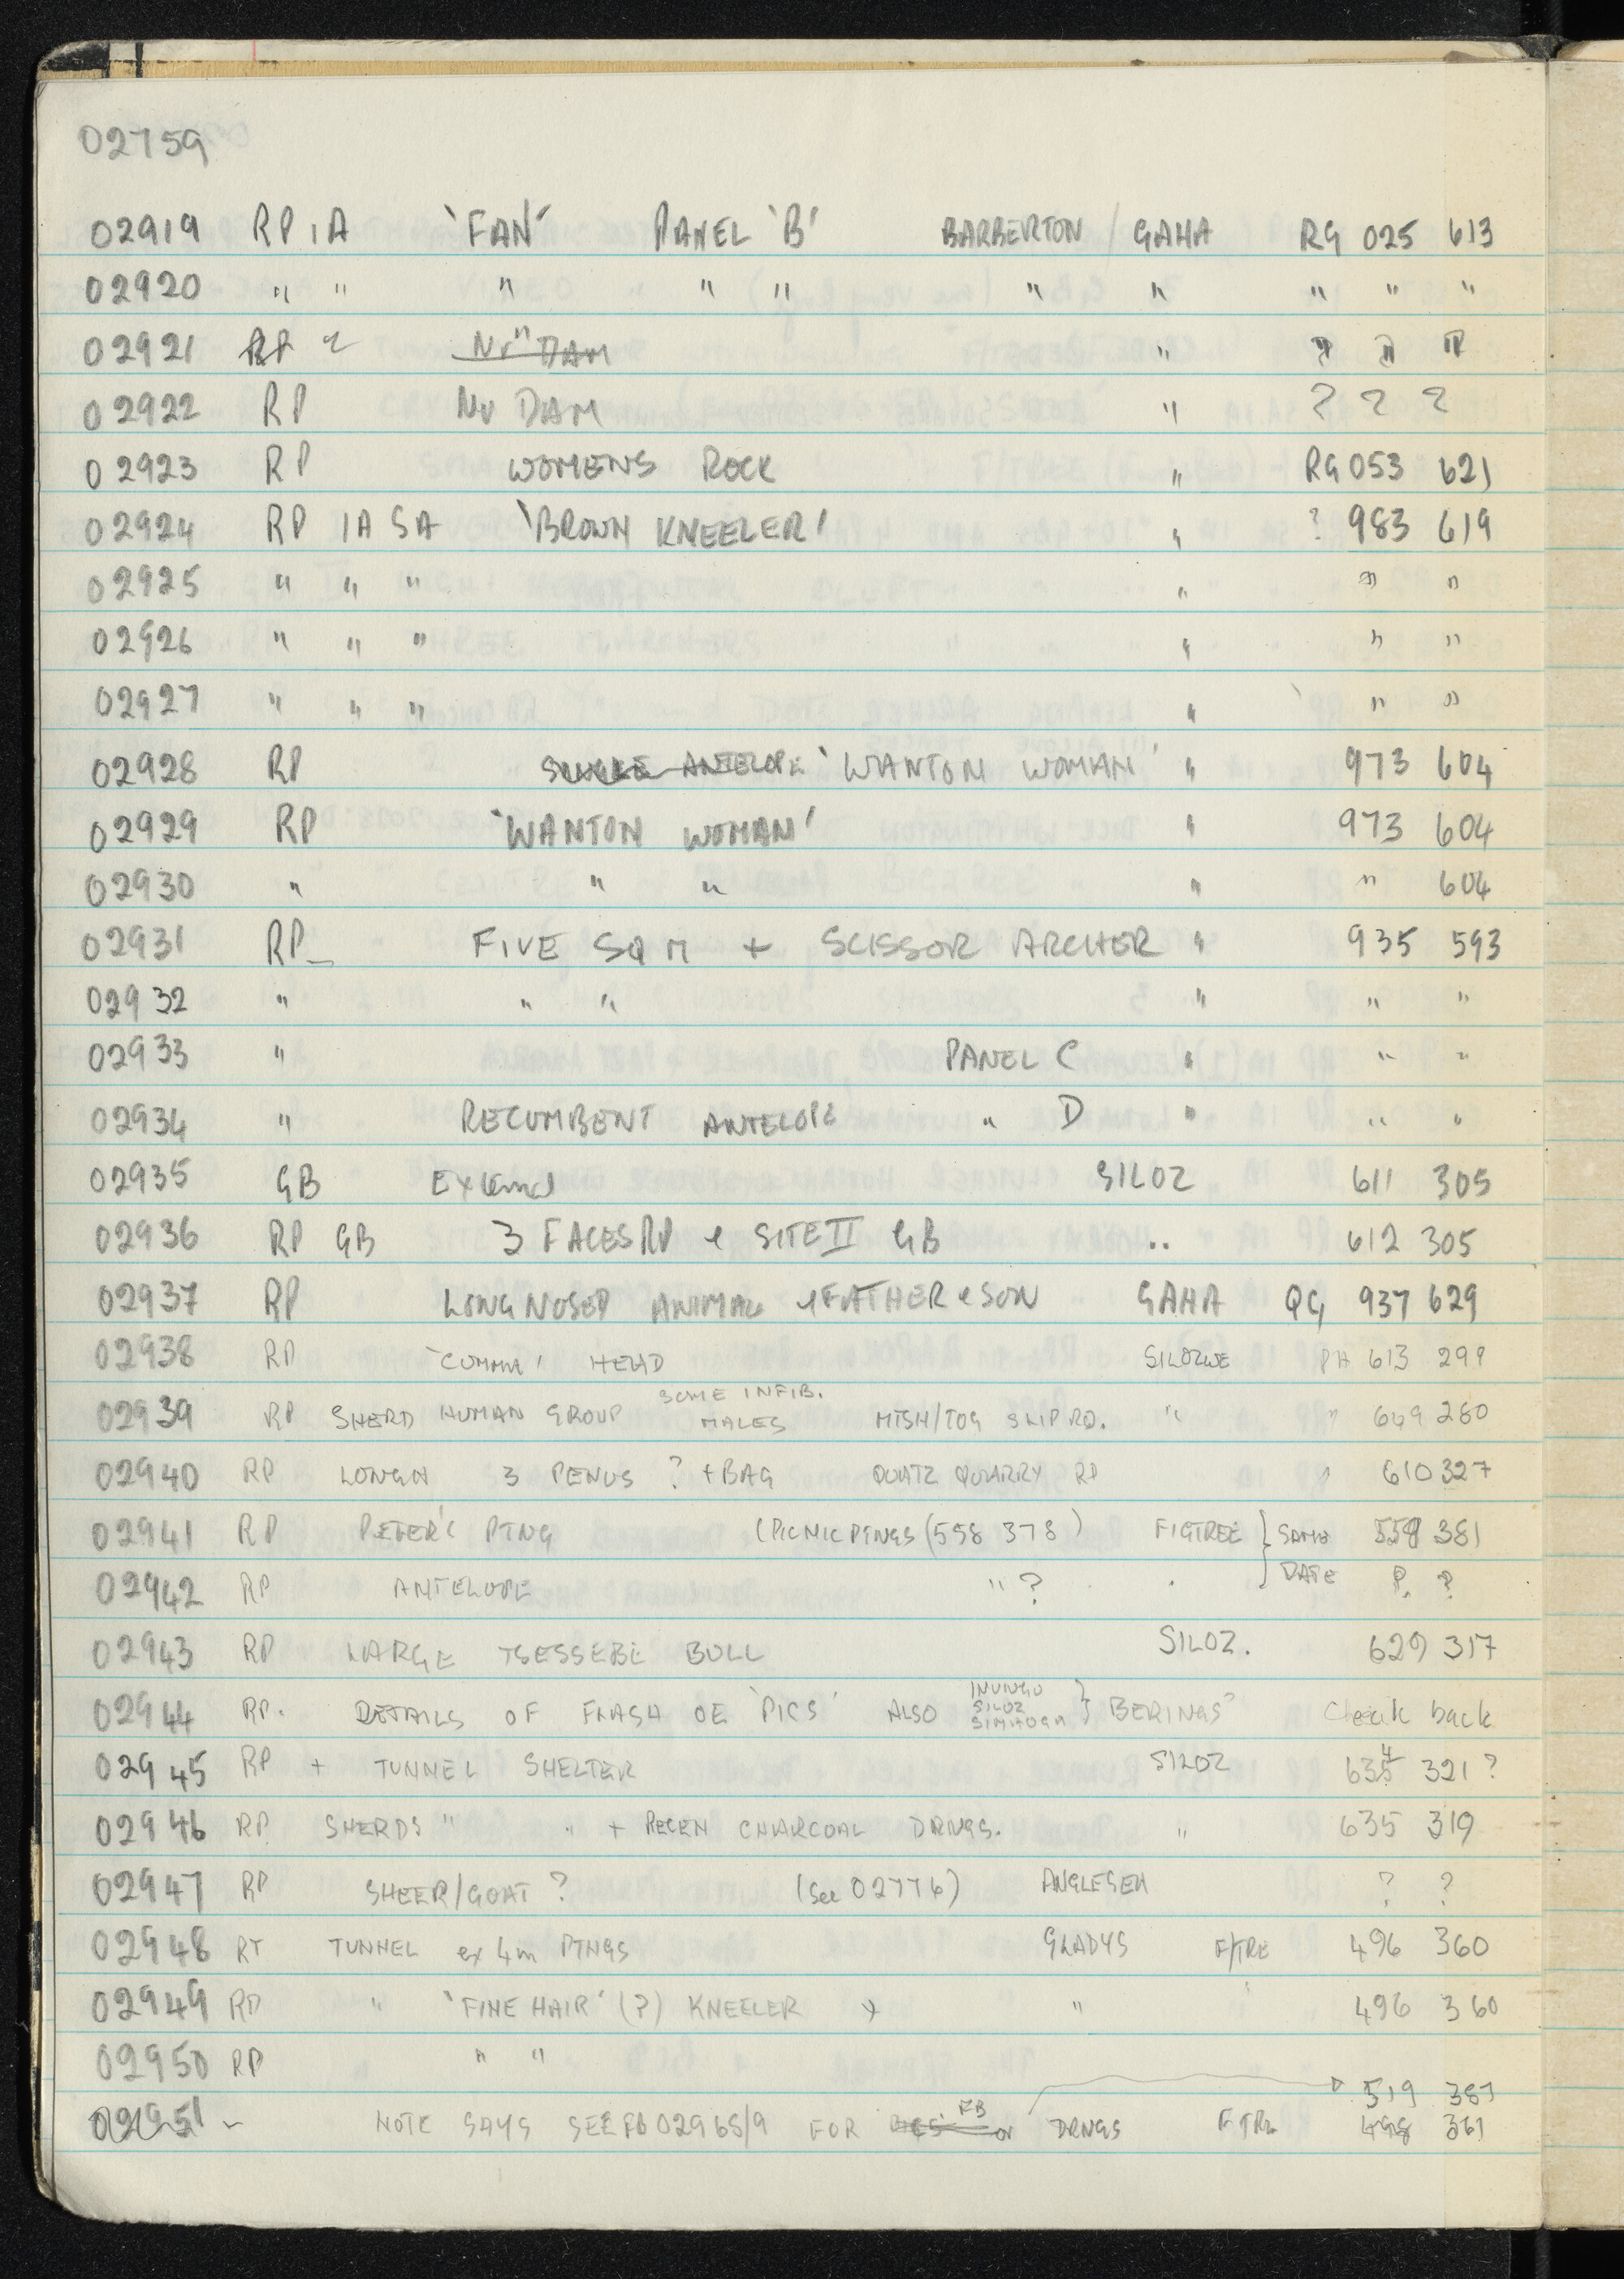 02759
02919 RP IA 'FAN' PANEL 'B' BARBERTON / GAHA RG 025 613
02920 " " " " " " " " " "
02921 RP Nr DAM " " " "
02922 RP Nr DAM " ? ? ?
02923 RP WOMENS ROCK " RG 053 621
02924 RP IA SA 'BROWN KNEELER' " ? 983 619
02925 " " " " " "
02926 " " " " " "
02927 " " " " " "
02928 RP SINGLE ANTELOPE 'WANTON WOMAN' " 973 604
02929 RP 'WANTON WOMAN' " 973 604
02930 " " " " " 604
02931 RP_ FIVE SQ M + SCISSOR ARCHER " 935 593
02932 " " " " " "
02933 " PANEL C " " "
02934 " RECUMBENT ANTELOPE " D " " "
02935 GB External SILOZ 611 305
02936 RP GB 3 FACES RP & SITE II GB " 612 305
02937 RP LONG NOSED ANIMAL & FATHER & SON GAHA QG 937 629
02938 RP 'COMMA' HEAD SILOZWE PH 613 299
SOME INFIB.
02939 RP SHERD HUMAN GROUP MALES MTSH/TOG SLIP RD. " " 649 280
02940 RP LONGN 3 PENUS ? + BAG QUATZ QUARRY RP " 610 327
02941 RP PETER'S PTNG (PICNIC PTNGS (558 378) FIGTREE } SAME 559 381
02942 RP ANTELOPE " ? " DATE ? ?
02943 RP LARGE TSESSEBE BULL SILOZ. 629 317
INUNGU
02944 RP. DETAILS OF FLASH OE 'PICS' ALSO SILOZ } BERINGS" Check back
SIMHOGA
02945 RP + TUNNEL SHELTER SILOZ 635 4 321 ?
02946 RP SHERDS " " + RECEN CHARCOAL DRNGS. " 635 319
02947 RP SHEER/GOAT ? (See 02776) ANGLESEA ? ?
02948 RT TUNNEL ex 4m PTNGS GLADYS F/TRE 496 360
02949 RP " 'FINE HAIR' (?) KNEELER " " 496 360
02950 RP " "
519 387
02951 - NOTE SAYS SEE FB 02968/9 FOR FB or DRNGS FTRE 498 361